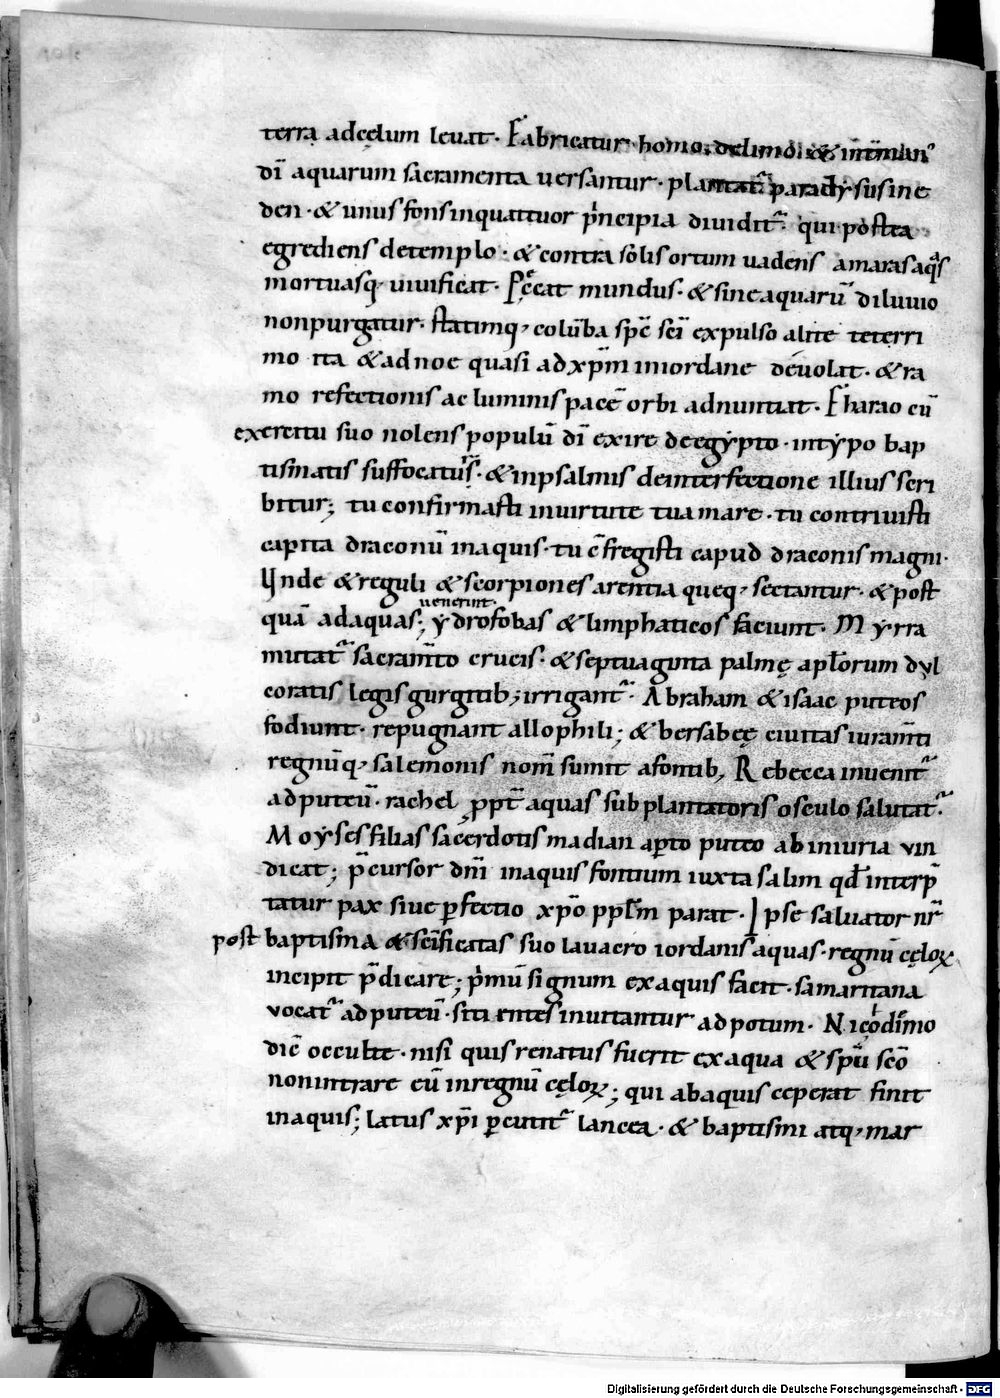 terrā ad cęlum leuat. Fabricatur homo de limo. & int̄ man'
dī aquarum sacramenta uersantur. plantat᷑ paradẏsus in e
den. & unus fons in quattuor p'ncipia diuidit᷑. qui postea
egrediens de templo. & contra solis ortum uadens amaras aq̄s
mortuasq; uiuificat. Peccat mundus. & sine aquarū diluuio
non purgatur. statimq; colūba sp̄c sc̄i expulso alite teterri
mo ita & ad noe quasi ad xp̄m in iordane deuolat. & ra
mo refectionis ac luminis pacē orbi adnuntiat. Pharao cū
exercitu suo nolens populū dī exire de egẏpto. in tẏpo bap
tismatis suffocatus. & in psalmis de interfectione illius scri
bitur; tu confirmasti in uirtute tua mare. tu contriuisti
capita draconū in aquis. tu c̄fregisti capud draconis magni.
Unde & reguli & scorpiones arentia queq; sectantur. & post
quā ad aquas; uenerint. ẏdrofobas & limphaticos faciunt. Mẏrra
mutat᷑ sacram̄to crucis. & septuaginta palmę apl̄orum dul
coratis legis gurgitib; irrigant᷑. Abraham & isaac puteos
fodiunt. repugnant allophili; & bersabeę ciuitas iuram̄ti
regnūq; salemonis nom̄ sumit a fontib; Rebecca inuenit᷑
ad puteū. rachel ꝓpt᷑ aquas subplantatoris osculo salutat᷑.
Moẏses filias sacerdotis madian apto puteo ab iniuria uin
dicat; p̄cursor dn̄i in aquis fontium iuxta salim qd̄ interp̄
tatur pax siue ꝑfectio xp̄o ppl̄m parat. Ipse saluator nr̄
post baptisma & sc̄ificatas suo lauacro iordanis aquas. regnū cęloꝝ
incipit p̄dicare; p'mū signum ex aquis facit. samaritana
uocat᷑ ad puteū. sitientes inuitantur ad potum. Nicodimo
dic̄ occulte. nisi quis renatus fuerit ex aqua & sp̄u sc̄o
non intrare eū in regnū cęloꝝ; qui ab aquis ceperat finit
in aquis; latus xp̄i ꝑcutit᷑ lancea. & baptismi atq; mar
Digitalisierung gefördert durch die Deutsche Forschungsgemeinschaft - DFG